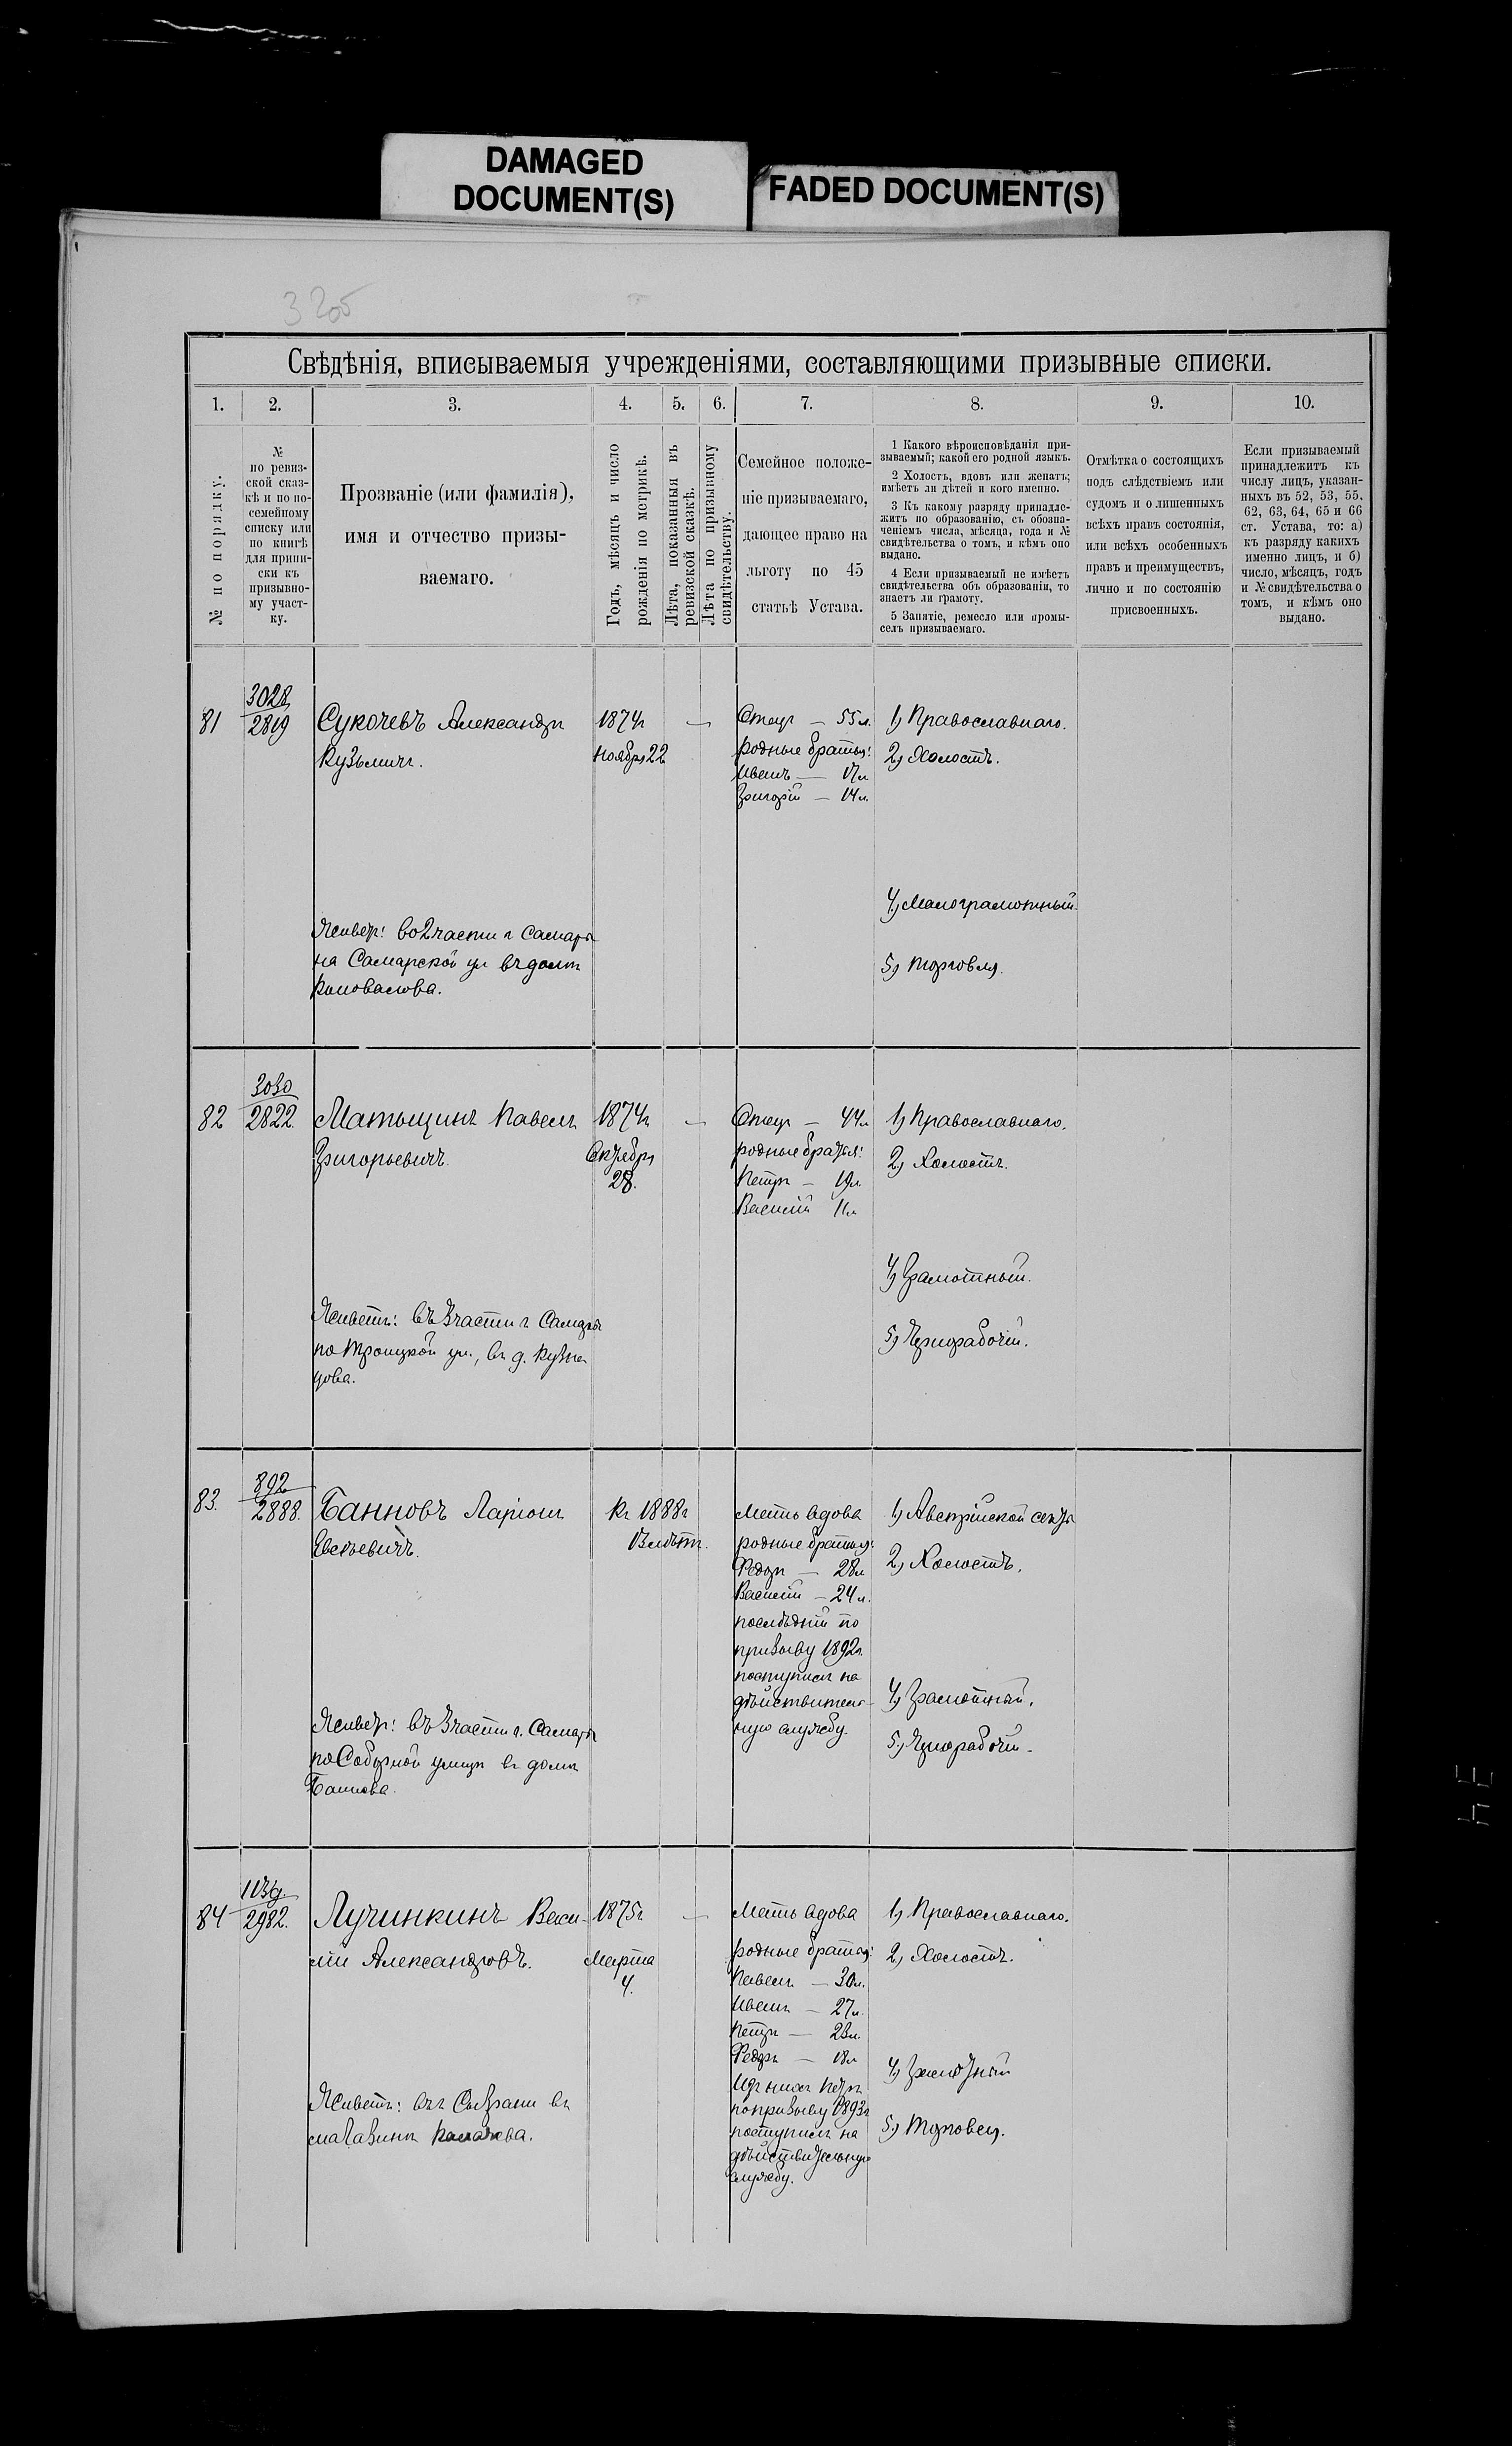 DAMAGED
DOCUMENT(S)
FADED DOCUMENT(S)
3205
Свѣдѣнія, вписываемыя учрежденіями, составляющими призывные списки.
1. 2. 3. 4. 5. 6. 7. 8. 9. 10.
№ по порядку.
№
по ревиз-
ской сказ-
кѣ и по по-
семейному
списку или
по книгѣ
для припи-
ски къ
призывно-
му участ-
ку.
Прозваніе (или фамилія),
имя и отчество призы-
ваемаго.
Годъ, мѣсяцъ и число
рожденія по метрикѣ.
Лѣта, показанныя въ
ревизской сказкѣ.
Лѣта по призывному
свидѣтельству.
Семейное положе-
ніе призываемаго,
дающее право на
льготу по 45
статьѣ Устава.
1 Какого вѣроисповѣданія при-
зываемый; какой его родной языкъ.
2 Холостъ, вдовъ или женатъ;
имѣетъ ли дѣтей и кого именно.
3 Къ какому разряду принадле-
житъ по образованію, съ обозна-
ченіемъ числа, мѣсяца, года и №
свидѣтельства о томъ, и кѣмъ оно
выдано.
4 Если призываемый не имѣетъ
свидѣтельства объ образованіи, то
знаетъ ли грамоту.
5 Занятіе, ремесло или промы-
селъ призываемаго.
Отмѣтка о состоящихъ
подъ слѣдствіемъ или
судомъ и о лишенныхъ
всѣхъ правъ состоянія,
или всѣхъ особенныхъ
правъ и преимуществъ,
лично и по состоянію
присвоенныхъ.
Если призываемый
принадлежитъ къ
числу лицъ, указан-
ныхъ въ 52, 53, 55,
62, 63, 64, 65 и 66
ст. Устава, то: а)
къ разряду какихъ
именно лицъ, и б)
число, мѣсяцъ, годъ
и № свидѣтельства о
томъ, и кѣмъ оно
выдано.
81
3028
2819
Сукочевъ Александръ
Кузьмичъ.
Живетъ: во 2 части г Самары
на Самарской ул въ домѣ
Коновалова.
1874г
ноября 22
—
Отецъ — 55 л.
родные братья:
Иванъ — 17 л
Григорій — 14 л.
1) Православнаго.
2) Холостъ.
4) Малограмотный.
5) Торговля.
82
3030
2822.
Матыцинъ Павелъ
Григорьевичъ.
Живетъ: въ 3 части г Самары
по Троицкой ул., въ д. Кузне
цова.
1874г
Октября
28.
—
Отецъ — 44 л
родные братья:
Петръ — 19 л.
Василій 11 л
1) Православнаго.
2) Холостъ.
4) Грамотный.
5) Чернорабочій.
83.
892
2888.
Банновъ Ларіонъ
Евсѣевичъ.
Живетъ: въ 3 части г. Самары
по Соборной улицѣ въ домѣ
Баннова.
Къ 1888г
13 лѣтъ.
Мать вдова
родные братья:
Федоръ — 28 л
Василій — 24 л.
послѣдній по
призыву 1892г.
поступилъ на
дѣйствитель-
ную службу.
1) Австрійской секты
2) Холостъ.
4) Грамотный.
5) Чернорабочій.
84
1139
2982.
Лучинкинъ Васи-
лій Александровъ.
Живетъ: въ г Сызрани въ
магазинѣ
1875г
Марта
4.
—
Мать вдова
родные братья:
Павелъ — 30 л.
Иванъ — 27 л.
Петръ — 23 л.
Федоръ — 18 л
Изъ нихъ Петръ
по призыву 1893г
поступилъ на
дѣйствительную
службу.
1) Православнаго.
2) Холостъ.
4) Грамотный
5) Торговля.